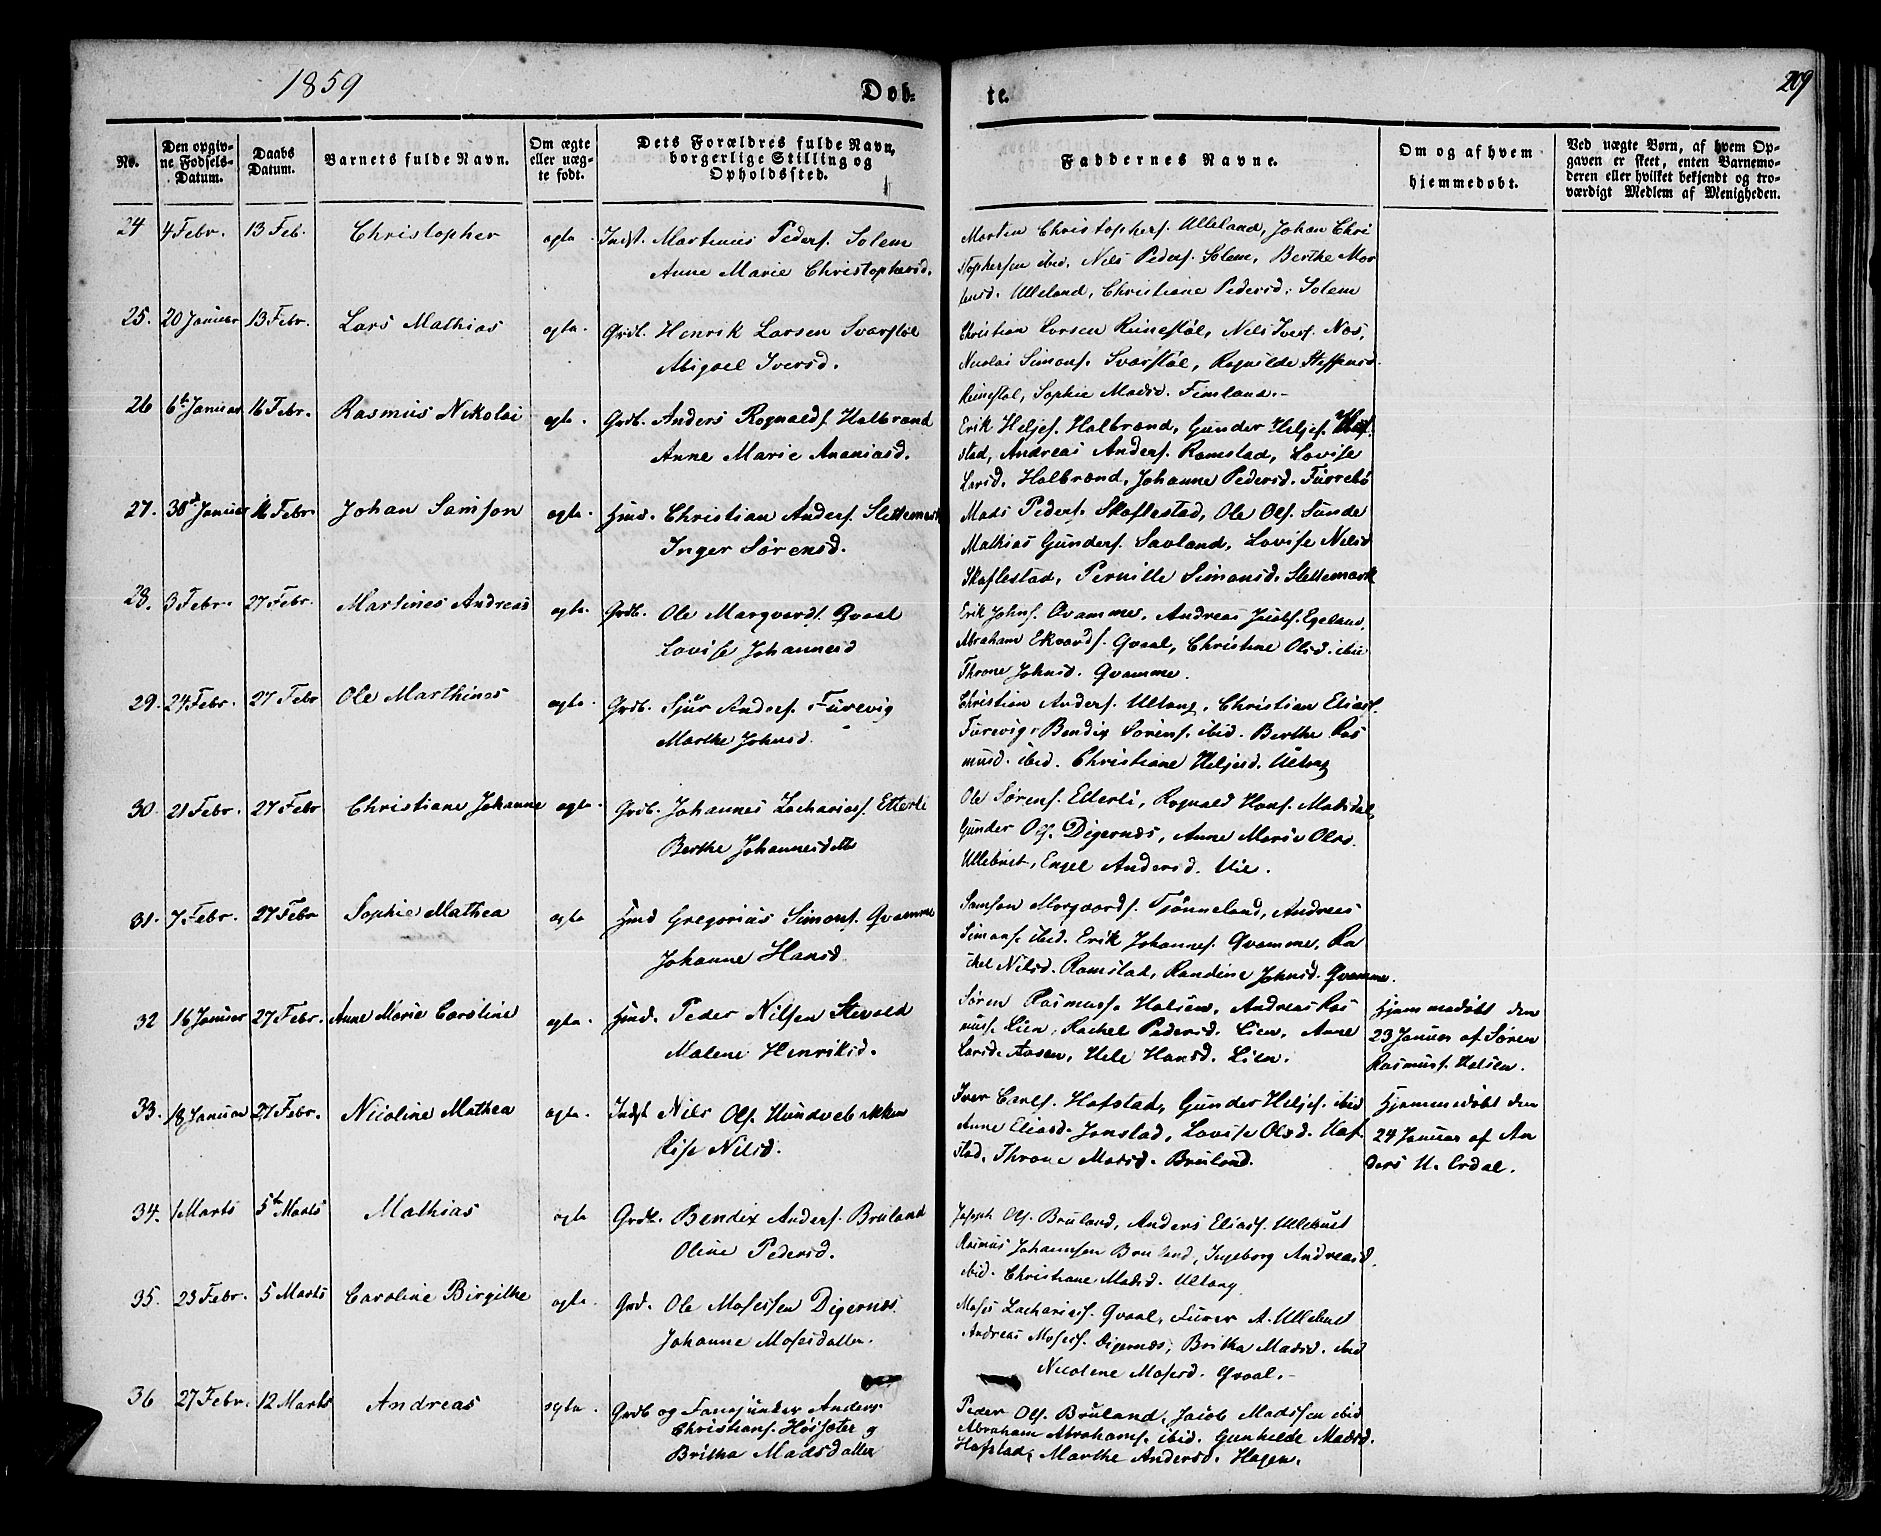 1859
Døb-
te.
209
No.
Den opgiv-
ne Fødsels-
Datum.
Daabs
Datum.
Barnets fulde Navn.
Om ægte
eller uæg-
te født.
Dets Forældres fulde Navn,
borgerlige Stilling og
Opholdssted.
Faddernes Navne.
Om og af hvem
hjemmedøbt.
Ved uægte Børn, af hvem Op-
gaven er skeet, enten Barnemo-
deren eller hvilket bekjendt og tro-
værdigt Medlem af Menigheden.
24 4 Febr. 13 Feb. Christopher ægte. Indst. Martinus Peders. Solem
Anne Marie Christophersd.
Morten Christophers. Ulleland, Johan Chri
stophersen ibid. Nils Peders. Solem, Berthe Mor
tensd. Ulleland, Christiane Pedersd. Solem
25. 20 Januar 13 Febr. Lars Mathias ægte. Grdb. Henrik Larsen Svarstøl
Abigael Iversd.
Christian Larsen Reinestøl, Nils Ivers. Næs,
Nicolai Simons. Svarstøl, Ragnilde Steffensd.
Reinestøl, Sophie Madsd. Fimland.
26 6te Januar 16 Febr. Rasmus Nikolai ægte. Grdb. Anders Rognalds. Halbrænd
Anne Marie Ananiasd.
Erik Heljes. Halbrænd, Gunder Heljes. Haf
stad, Andreas Anders. Ramstad, Lovise
Larsd. Halbrænd, Johanne Pedersd. Furrebø
27. 30te Januar 16 Febr. Johan Samson ægte. Hmd. Christian Anders. Slettemark
Inger Sørensd.
Mads Peders. Skaflestad, Ole Ols. Sunde
Mathias Gunders. Savland, Lovise Nilsd
Skaflestad, Pernille Simonsd. Slettemark
28. 3 Febr. 27 Febr. Martines Andreas ægte. Grdb. Ole Margvards. Qvaal
Lovise Johannesd
Erik Johns. Qvamme, Andreas Jacobs. Egeland,
Abraham Ekvards. Qvaal, Christine Olsd. ibid
Throne Johnsd. Qvamme.
29. 24 Febr. 27 Febr Ole Marthines ægte. Grdb. Sjur Anders. Furevig
Marthe Johnsd.
Christian Anders. Ultang, Christian Elias.
Furevig, Bendix Sørens. ibid. Berthe Ras
musd. ibid. Christiane Heljesd. Ultang
30. 21 Febr. 27 Febr Christiane Johanne ægte. Grdb. Johannes Zacharias. Etterli
Berthe Johannesdatter
Ole Sørens. Etterli, Rognald Hans. Mardal,
Gunder Ols. Digernæs, Anne Marie Olsd.
Ullebust, Engel Andersd. Vie.
31. 7 Febr. 27 Febr Sophie Mathea ægte Hmd Gregorius Simons. Qvamme
Johanne Hansd.
Samson Morgvards. Tønneland, Andreas
Simons. ibid. Erik Johannes. Qvamme, Ra
chel Nilsd. Ramstad, Randine Johnsd. Qvamme.
32 16 Januar 27 Febr. Anne Marie Caroline ægte. Hmd. Peder Nilsen Stevold
Malene Henriksd.
Søren Rasmuss. Halsen, Andreas Ras
muss. Lien, Rachel Pedersd. Lien, Anne
Larsd. Aasen, Hele Hansd. Lien.
Hjemmedøbt den
23 Januar af Søren
Rasmuss. Halsen.
33. 18 Januar 27 Febr. Nicoline Mathea ægte. Indst Nils Ols. Hundvebakken
Rise Nilsd.
Iver Carls. Hafstad, Gunder Heljes. ibid
Anne Eliasd. Jonstad, Lovise Olsd. Haf
stad, Throne Madsd. Bruland.
Hjemmedøbt den
24 Januar af An
ders U. Erdal.
34. 1 Marts 5te Marts Mathias ægte Grdb. Bendix Anders. Bruland
Oline Pedersd.
Joseph Ols. Bruland, Anders Elias. Ullebust
Rasmus Johannsen Bruland, Ingeborg Andreasd.
ibid. Christiane Madsd. Ultang
35. 23 Febr. 5 Marts Caroline Birgithe ægte. Grd. Ole Mosessen Digernæs.
Johanne Mosesdatter.
Moses Zacharias. Qvaal, Furer A. Ullebust
Andreas Moses. Digernæs, Britha Madsd. ibid
Nicolene Mosesd. Qvaal.
36 27 Febr. 12 Marts Andreas ægte. Grdb og Fanejunker Anders
Christians. Høisæter og
Britha Madsdatter
Peder Ols. Bruland, Jacob Madssen ibid
Abraham Abrahams. ibid. Gunhilde Madsd.
Hafstad, Marthe Andersd. Hagen.